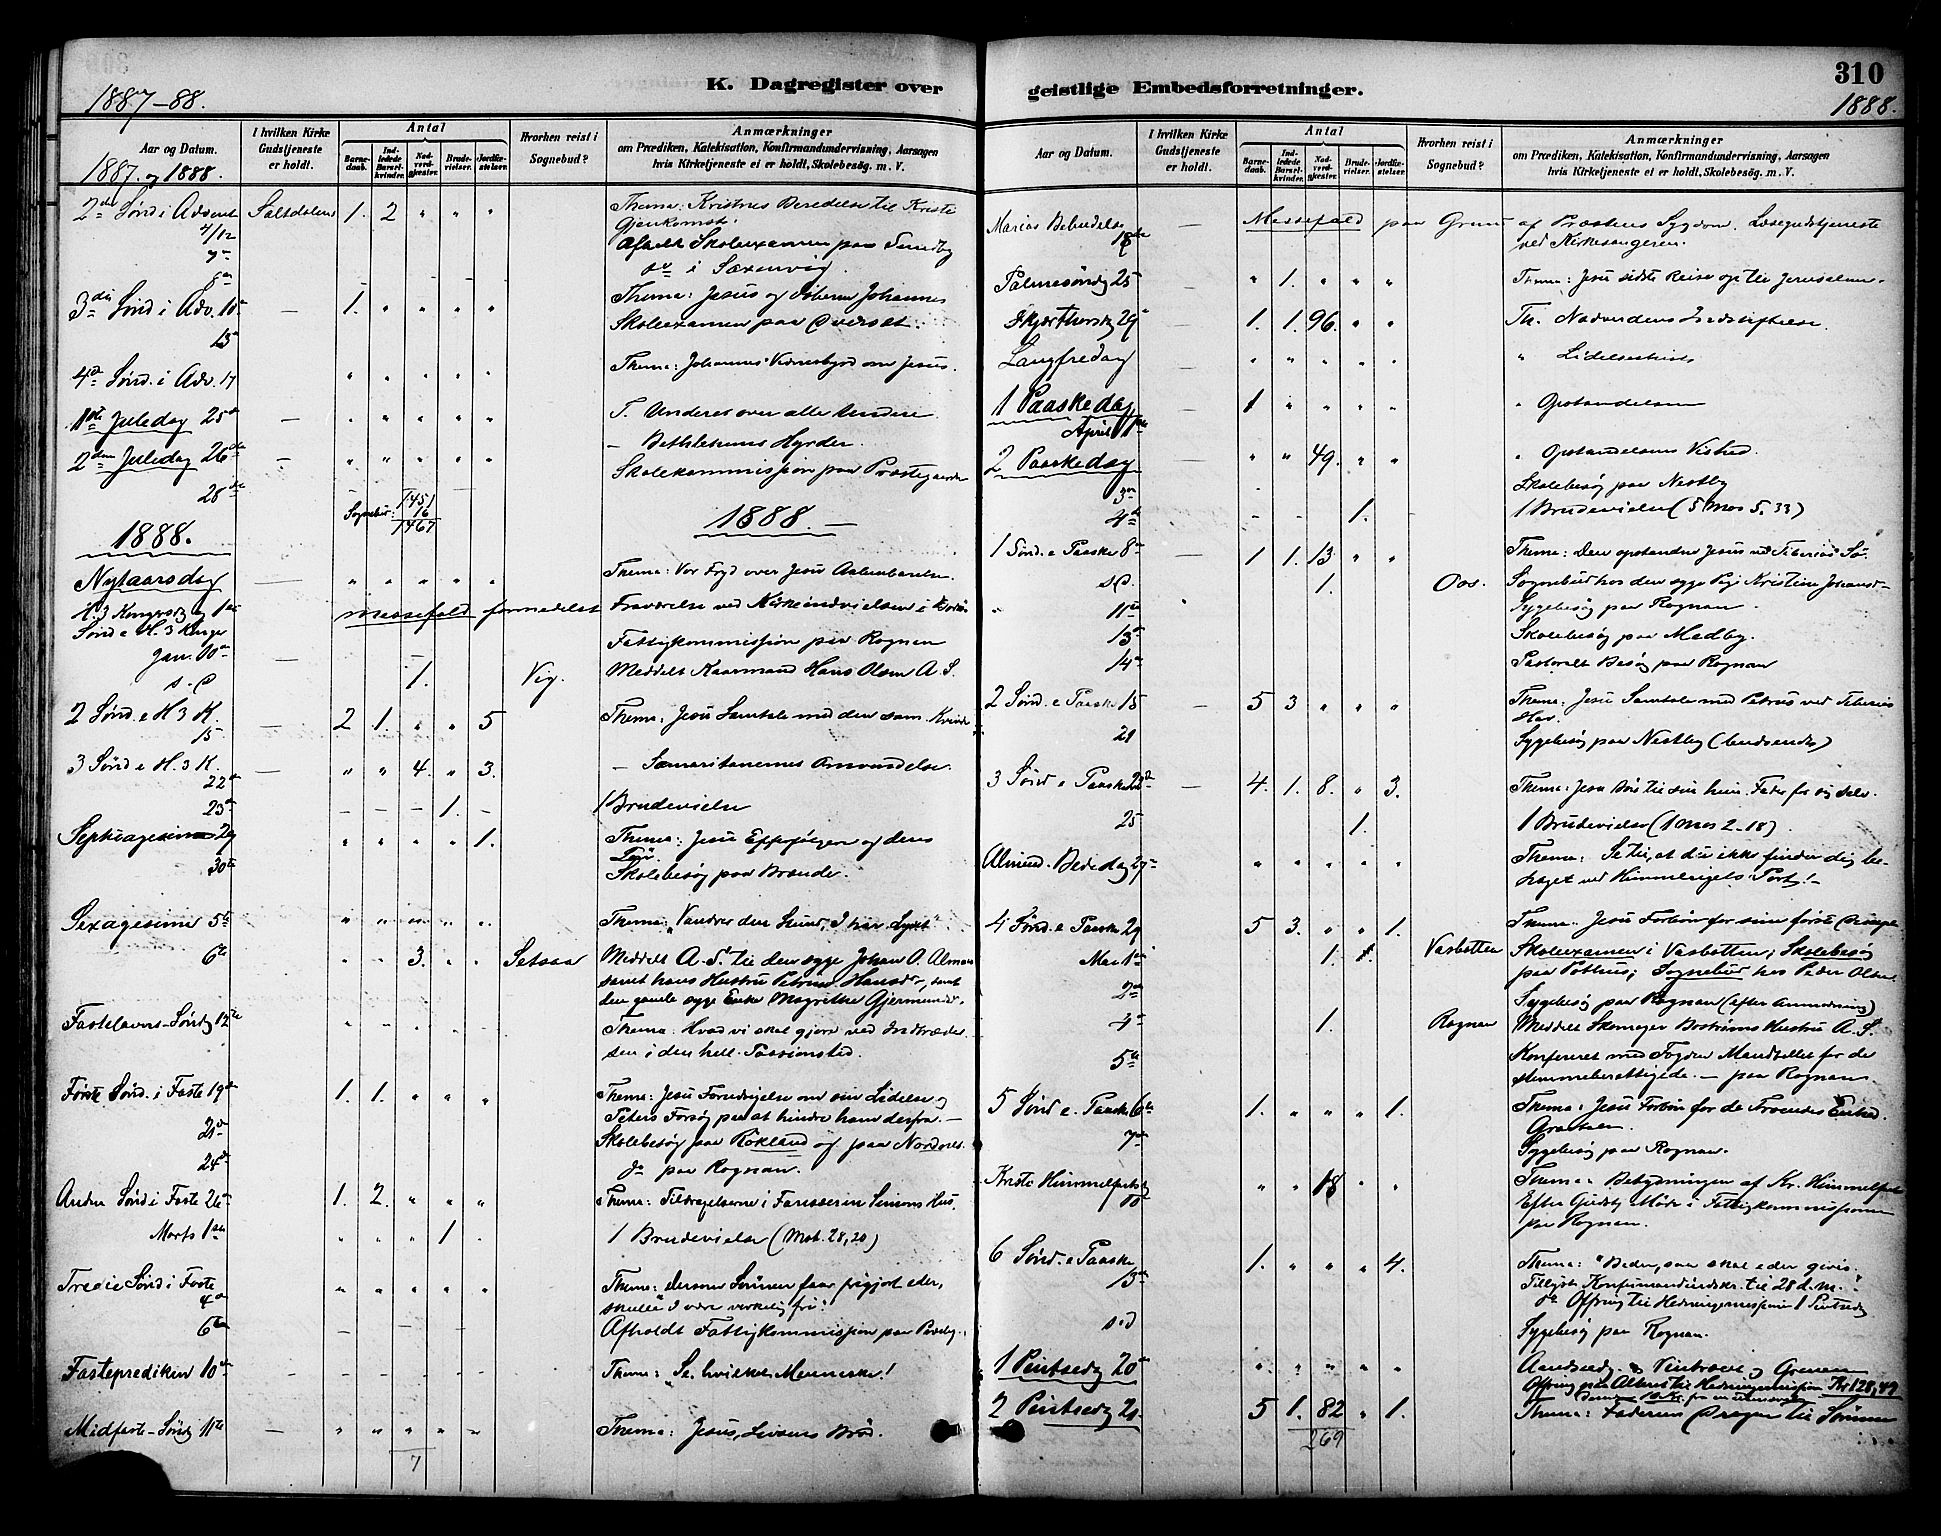 K. Dagregister over
1887-88.
Aar og Datum.
I hvilken Kirke Gudstjeneste er holdt.
Antal
Barnedaab.
Indledede Barselkvinder.
Nadverdgjester.
Brudevielser.
Jordfæstelser.
Hvorhen reist i Sognebud?
Anmærkninger
om Prædiken, Katekisation, Konfirmandundervisning, Aarsagen
hvis Kirketjeneste ei er holdt, Skolebesøg, m. V.
1887. og 1888.
2den Sønd i Advent Saltdalens 1. 2 " " " Thema: Kristnes Beredelse til Kristi
4/12 Gjenkomst.
7de Afholdt Skoleexamen paa Sundby
8de do i Saxenvig.
3die Sønd i Adv. 10de — 1. " " " " Thema: Jesus og Døberen Johannes
13 Skoleexamen paa
4de Sønd. i Adv. 17 " " " " " Thema: Johannes' Vidnesbyrd om Jesus.
1ste Juledag 25de — " " " " " T. Underet over alle Undere
— Bethlehems Hyrder.
2den Juledag 26de — " " " " "
28de Skolekommission paa Præstegaarden
1451
Sognebud: 16
1467
1888. 1888. —
Nytaarsdag — " " " " " Thema: Vor Fryd over Jesu Aabenbarelse.
H. 3 Kongersdag 1ste messefald formedelst Fraværelse ved Kirkeindvielsen i Bodø
Sønd e H. 3 Konger
Jan. 10de — Fattigkommission paa Rognan
s. D 1. Vig. Meddelt Kaarmand Hans Olsen A. S.
2 Sønd. e H 3 K. — 2 1. " " 5 Thema: Jesu Samtale med den sam. Kvinde
15
3 Sønd e H. 3 K. — " " 4. " 3. — Samaritanernes Omvendelse.
22de
23de — — — 1. — 1 Brudevielse
Septuagesima 29 " " " " 1. Thema: Jesu Efterfølgere og deres
30te Skolebesøg paa Brænde.
Sexagesima 5te " " " " " Thema: "Vandrer den Stund, I har Lyset"
6te " " 3. " " Setsaa Meddelt A. S. til den syge Johan A. Almen
samt hans Hustru Petrine Hansdr, samt
den gamle syge Enke Magrethe Gjermunds.
Fastelavns-Sønd 12te " " " " Thema: Hvad vi skal gjøre ved Indtrædelsen i den hell. Passionstid.
Første Sønd. i Faste 19de 1. 1. " " " Thema: Jesu Forudsigelse om sin Lidelse og
Peters Forsøg paa at hindre ham derfra. —
21de Skolebesøg paa Rökland og paa Nordnes.
24de do paa Rognan.
Anden Sønd i Faste 26de 1. 2. " " " Thema: Tildragelserne i Farisæeren Simons Hus.
Marts 1ste " " " 1 " 1 Brudevielse (Mat. 28, 20)
Tredie Sønd i Faste " " " " " Thema: dersom Sønnen faar frigjort eder,
4de skulle I være virkelig fri!
6te — — — Afholdt Fattigkommission paa
Fasteprædiken 10de - - - - - Thema: Se, hvilket Menneske!
Midfaste-Sønd 11te - " " " " " Thema: Jesus, Livsens Brød.
7
geistlige Embedsforretninger.
310
1888.
Aar og Datum.
I hvilken Kirke Gudstjeneste er holdt.
Antal
Barnedaab.
Indledede Barselkvinder.
Nadverdgjester.
Brudevielser.
Jordfæstelser.
Hvorhen reist i Sognebud?
Anmærkninger
om Prædiken, Katekisation, Konfirmandundervisning, Aarsagen
hvis Kirketjeneste ei er holdt, Skolebesøg, m. V.
Marias Bebudelse — Messefald paa Grund af Præstens Sygdom. Læsegudstjeneste
18de ved Kirkesangeren.
Palmesøndg 25 " 1. " " " Thema: Jesu sidste Reise op til Jerusalem.
Skjærthorsdg 29de 1. 1. 96. " " Th. Nadverdens Indstiftelse.
Langfredag — " " " " " " Lidelseshist.
1 Paaskedag — 1 " " " " " Opstandelsen
April 1ste
2 Paaskedag — " " 49. " " " Opstandelsens Vished.
3die - - - - Skolebesøg paa Nestby
4de - - - 1. 1 Brudevielse (5 Mos 5. 33)
1 Sønd. e Paaske 8de — 1 1. 13 " " Thema: Den opstandne Jesus ved Tiberias Sø.
s. D. 1. Oos. Sognebud hos den syge Pige Kristine Johansd-
11te Sygebesøg paa Rognan.
13de Skolebesøg paa Medby.
14de Pastoralt Besøg paa Rognan
2 Sønd. e Paaske 15 5 3 " " " Thema: Jesu Samtale med Petrus ved Tiberias
Hav.
21 Sygebesøg paa Nestby
3 Sønd e Paaske 22de — 4. 1. 8. " 3. Thema: Jesu Bøn til sin him. Fader for sig selv.
25 1. 1 Brudevielse (1 Mos 2-18).
Almind. Bededag 27de " " " " " Thema: Se til, at du ikke finder dig be-
draget ved Himmerigets Port! -
4 Sønd. e Paaske 29 5 3. " " 1. Thema: Jesu Forbøn for sine første Disciple
Mai 1ste 1. Vasbotten Skoleexamen i Vasbotten; Skolebesøg
paa Pothus; Sognebud hos Peder Olsen
2den Sygebesøg paa Rognan (efter Anmodning)
4de 1. Rognan Meddelt Skomager Bostrøms Hustru A. S.
5te Konfereret med Fogden Mandtallet for de
stemmeberettigede. — paa Rognan
5 Sønd e. Paaske 6te 1. " " " 1. Thema: Jesu Forbøn for de Troendes Enhed.
7de Sygebesøg paa Rognan.
Kristi Himmelfartsdg " " 18 " " Thema: Betydningen af Kr. Himmelfart
10 Efter Gudstj. Møde i Fattigkommissionen
paa Rognan.
6 Sønd. e Paaske 1. " " " 4. Thema: "Beder, saa skal eder gives."
13de Tillyst Konfirmandindskr. til 28 d. m.
do Offring til Hedningemission 1 Pintsedg
s. d Sygebesøg paa Rognan.
1 Pintsedg 20de " " " " "
Offring paa Alteret til Hedningemission Kr 128,49
2 Pintsedg 21. 5 1. 82 " 1. Thema: Faderens Dragen til Sønnen
269